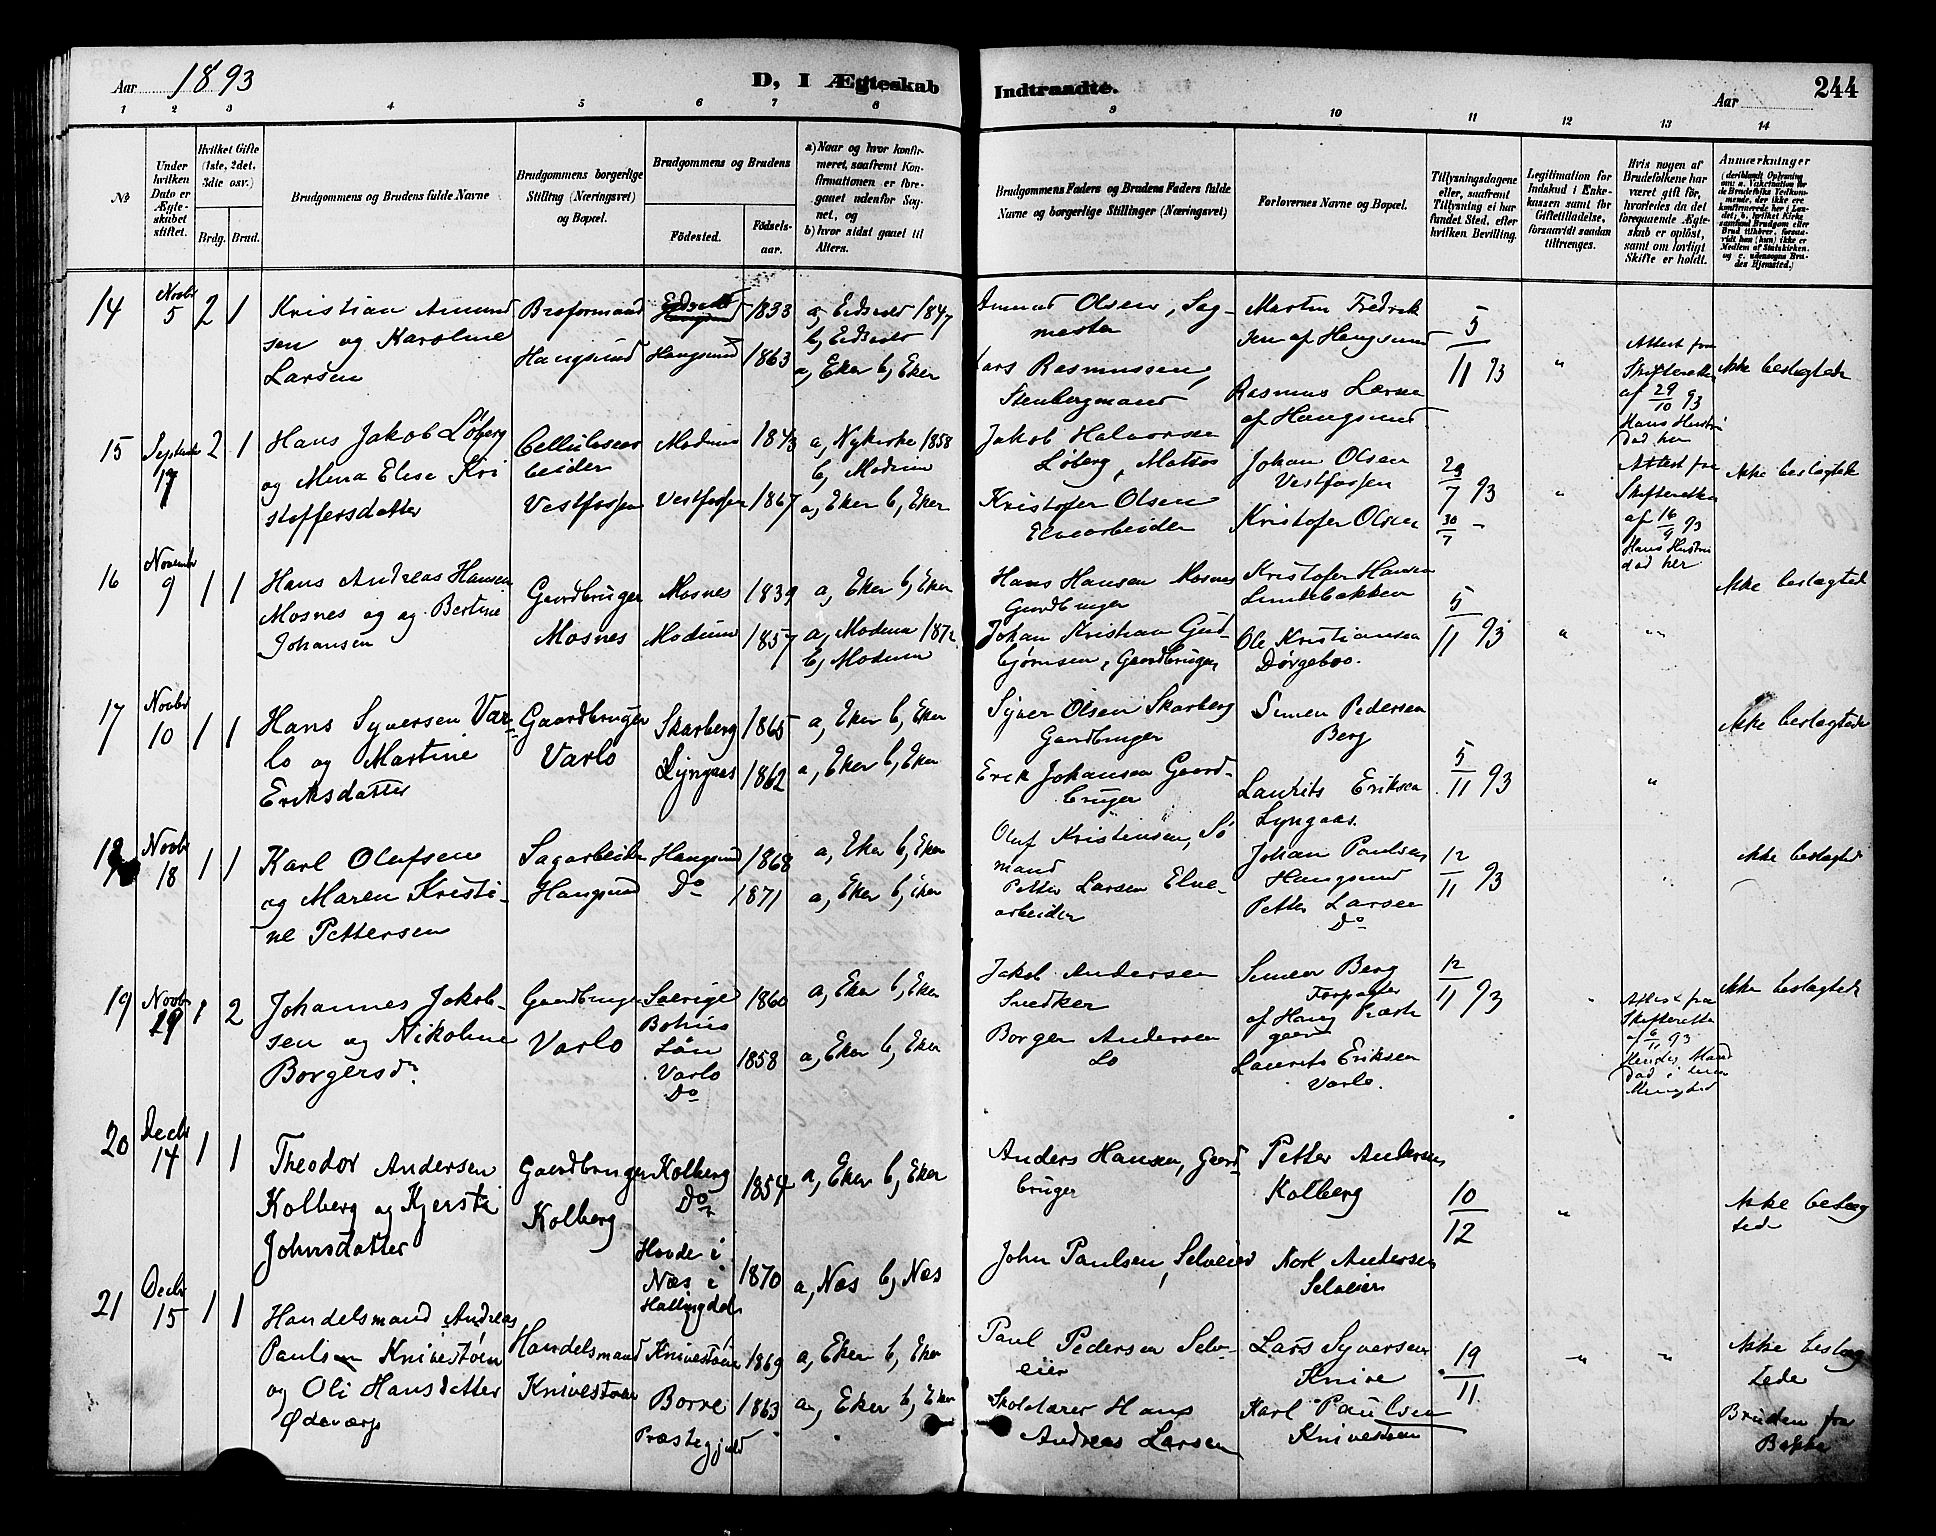 Aar 1893
D, I Ægteskab Indtraadte.
Aar
244
1 2 3 4 5 6 7 8 9 10 11 12 13 14
№
Under hvilken Dato er Ægteskabet stiftet.
Hvilket Gifte (1ste, 2det, 3die osv.)
Brdg. Brud.
Brudgommens og Brudens fulde Navne
Brudgommens borgerlige Stilling (Næringsvei) og Bopæl.
Brudgommens og Brudens
Fødested.
Fødsels-aar.
a) Naar og hvor konfirmeret, saafremt Konfirmationen er foregaaet udenfor Sognet, og
b) hvor sidst gaaet til Alters.
Brudgommens Faders og Brudens Faders fulde Navne og borgerlige Stillinger (Næringsvei)
Forlovernes Navne og Bopæl.
Tillysningsdagene eller, saafremt Tillysning ei har fundet Sted, efter hvilken Bevilling.
Legitimation for Indskud i Enkekassen samt for Giftetilladelse, forsaavidt saadan tiltrænges.
Hvis nogen af Brudefolkene har været gift før, hvorledes da det foregaaende Ægteskab er opløst, samt om lovligt Skifte er holdt.
Anmærkninger (deriblandt Oplysning om: a. Vakcination for de Brudefolks Vedkommende, der ikke ere konfirmerede her i Landet; b. hvilket Kirkesamfund Brudgom eller Brud tilhører, forsaavidt han (hun) ikke er Medlem af Statskirken, og c. udensogns Brudes Hjemsted.)
14 Novbr 5 2 1
Kristian Amundsen og Karoline Larsen
Broformand Haugsund
Eidsvold 1833
Haugsund 1863
a, Eidsvold 1847 b, Eidsvold
a, Eker b, Eker
Amund Olsen, Sagmester
Lars Rasmussen, Stenbergmand
Martin Fredriksen af Haugsund
Rasmus Larsen af Haugsund
5/11 93
"
Attest fra Skifteretten af 29/10 93 Hans Hustru død her
Ikke beslægtede
15 September 17 2 1
Hans Jakob Løberg og Mina Elise Kristoffersdatter
Cellulosearbeider Vestfossen
Modum 1843
Vestfossen 1867
a, Nykirke 1858 b, Modum
a, Eker b, Eker
Jakob Halvorsen Løberg, Matros
Kristofer Olsen Elvearbeider
Johan Olsen Vestfossen
Kristofer Olsen
23/7 93
30/7 -
"
Attest fra Skifteretten af 16/9 93 Hans Hustru død her
Ikke beslægtede
16 November 9 1 1
Hans Andreas Hansen Mosnes og og Bertine Johansen
Gaardbruger Mosnes
Mosnes 1839
Modum 1857
a, Eker b, Eker
a, Modum 1872 b, Modum
Hans Hansen Mosnes Gaardbruger
Johan Kristian Gudbjørnsen, Gaardbruger
Kristofer Hansen Lundebakken
Ole Kristiansen Dørgebo.
5/11 93
"
"
Ikke beslægtede
17 Novbr 10 1 1
Hans Syversen Varlo og Martine Eriksdatter
Gaardbruger Varlo
Skarberg 1865
Lyngaas 1862
a, Eker b, Eker
a, Eker b, Eker
Syver Olsen Skarberg Gaardbruger
Erik Johansen Gaardbruger
Simen Pedersen Berg
Laurits Eriksen Lyngaas.
5/11 93
"
Ikke beslægtede
18 Novbr 18 1 1
Karl Olufsen og Maren Kristine Pettersen
Sagarbeider Haugsund
Haugsund 1868
Do 1871
a, Eker b, Eker
a, Eker b, Eker
Oluf Kristensen, Sømand
Petter Larsen Elvearbeider
Johan Paulsen Haugsund
Petter Larsen Do
12/11 93
"
Ikke beslægtede
19 Novbr 29 1 2
Johannes Jakobsen og Nikoline Borgersd.
Gaardbruger Varlo
Sverige Bohus Län 1860
Varlo Do 1858
a, Eker b, Eker
a, Eker b, Eker
Jakob Andersen Snedker
Borger Andersen Lo
Simen Berg Forpagter af Haug Præstegaard
Laurits Eriksen Varlo.
12/11 93
"
Attest fra Skifteretten af 6/11 93 Hendes Mand død i her Menighed
Ikke beslægtede
20 Decbr 14 1 1
Theodor Andersen Kolberg og Kjersti Johnsdatter
Gaardbruger Kolberg
Kolberg Do 1854
Hovde i Næs i Hallingdal 1870
a, Eker b, Eker
a, Næs b, Næs
Anders Hansen, Gaardbruger
John Paulsen, Selveier
Petter Andersen Kolberg
Karl Andersen Selveier
10/12
"
Ikke beslægtede
21 Decbr 15 1 1
Handelsmand Andreas Paulsen Knivestøen og Oli Hansdatter Ødevarp
Handelsmand Knivestøen
Knivestøen 1869
Borre Præstegjeld 1863
a, Eker b, Eker
a, Eker b, Eker
Paul Pedersen Selveier
Skolelærer Hans Andreas Larsen
Lars Syversen Knive
Karl Paulsen Knivestøen
19/11
"
"
Ikke beslægtede
Bruden fra Bakke